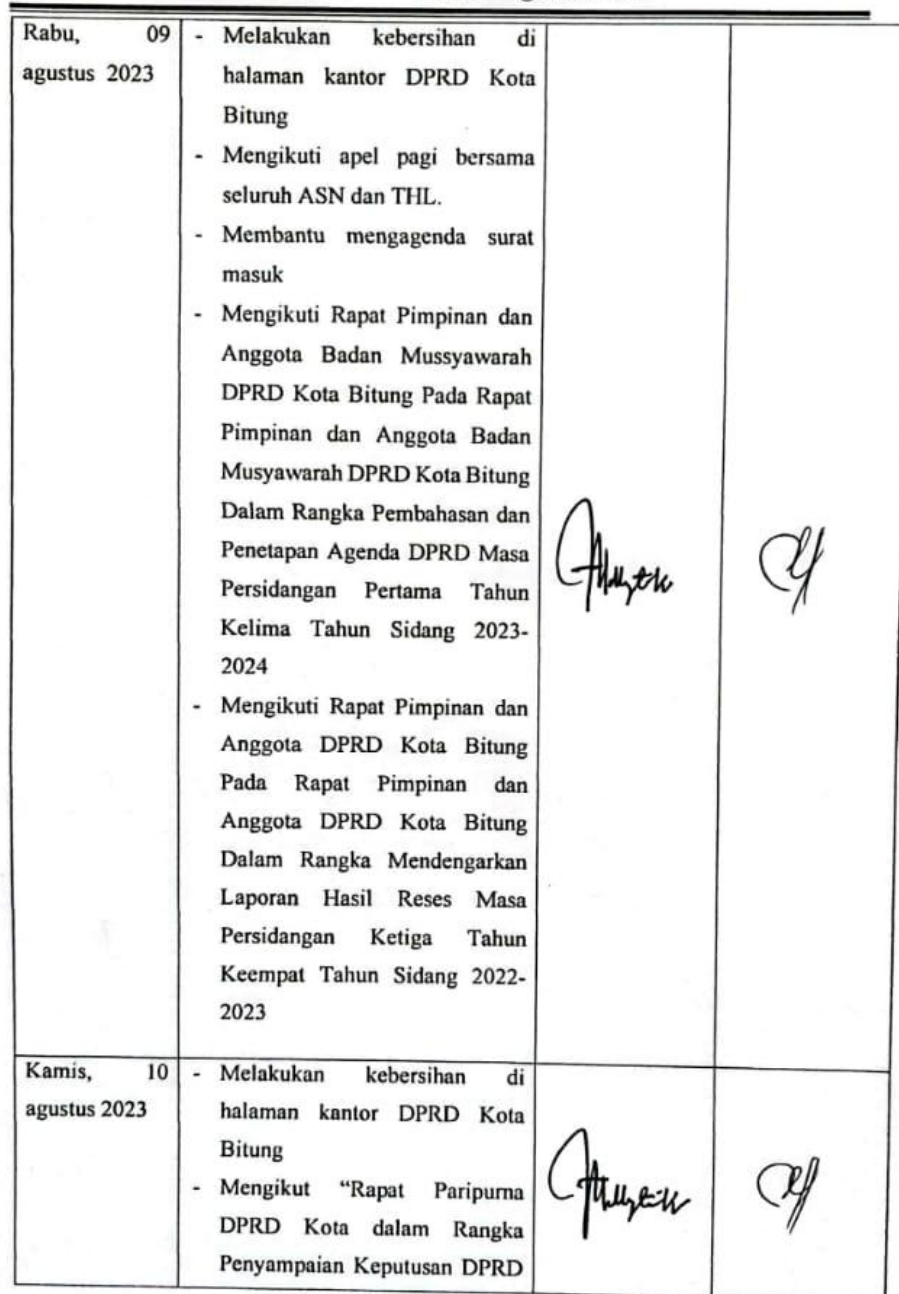 Rabu, 09
agustus 2023
- Melakukan kebersihan di
halaman kantor DPRD Kota
Bitung
- Mengikuti apel pagi bersama
seluruh ASN dan THL.
- Membantu mengagenda surat
masuk
- Mengikuti Rapat Pimpinan dan
Anggota Badan Mussyawarah
DPRD Kota Bitung Pada Rapat
Pimpinan dan Anggota Badan
Musyawarah DPRD Kota Bitung
Dalam Rangka Pembahasan dan
Penetapan Agenda DPRD Masa
Persidangan Pertama Tahun
Kelima Tahun Sidang 2023-
2024
- Mengikuti Rapat Pimpinan dan
Anggota DPRD Kota Bitung
Pada Rapat Pimpinan dan
Anggota DPRD Kota Bitung
Dalam Rangka Mendengarkan
Laporan Hasil Reses Masa
Persidangan Ketiga Tahun
Keempat Tahun Sidang 2022-
2023
Kamis, 10
agustus 2023
- Melakukan kebersihan di
halaman kantor DPRD Kota
Bitung
- Mengikut “Rapat Paripurna
DPRD Kota dalam Rangka
Penyampaian Keputusan DPRD